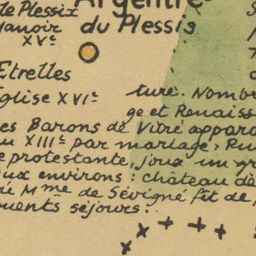 de Plessix
Argentré
du Plessis
Manoir
XVe
Etrelles
Eglise XVIe
ture. Nomb
ge et Renaiss
es Barons de Vitré apparo
au XIIIe par mariage. Ru
e protestante, joua un gr
ux environs : château de
Mme de Sévigné fit de
quents séjours.